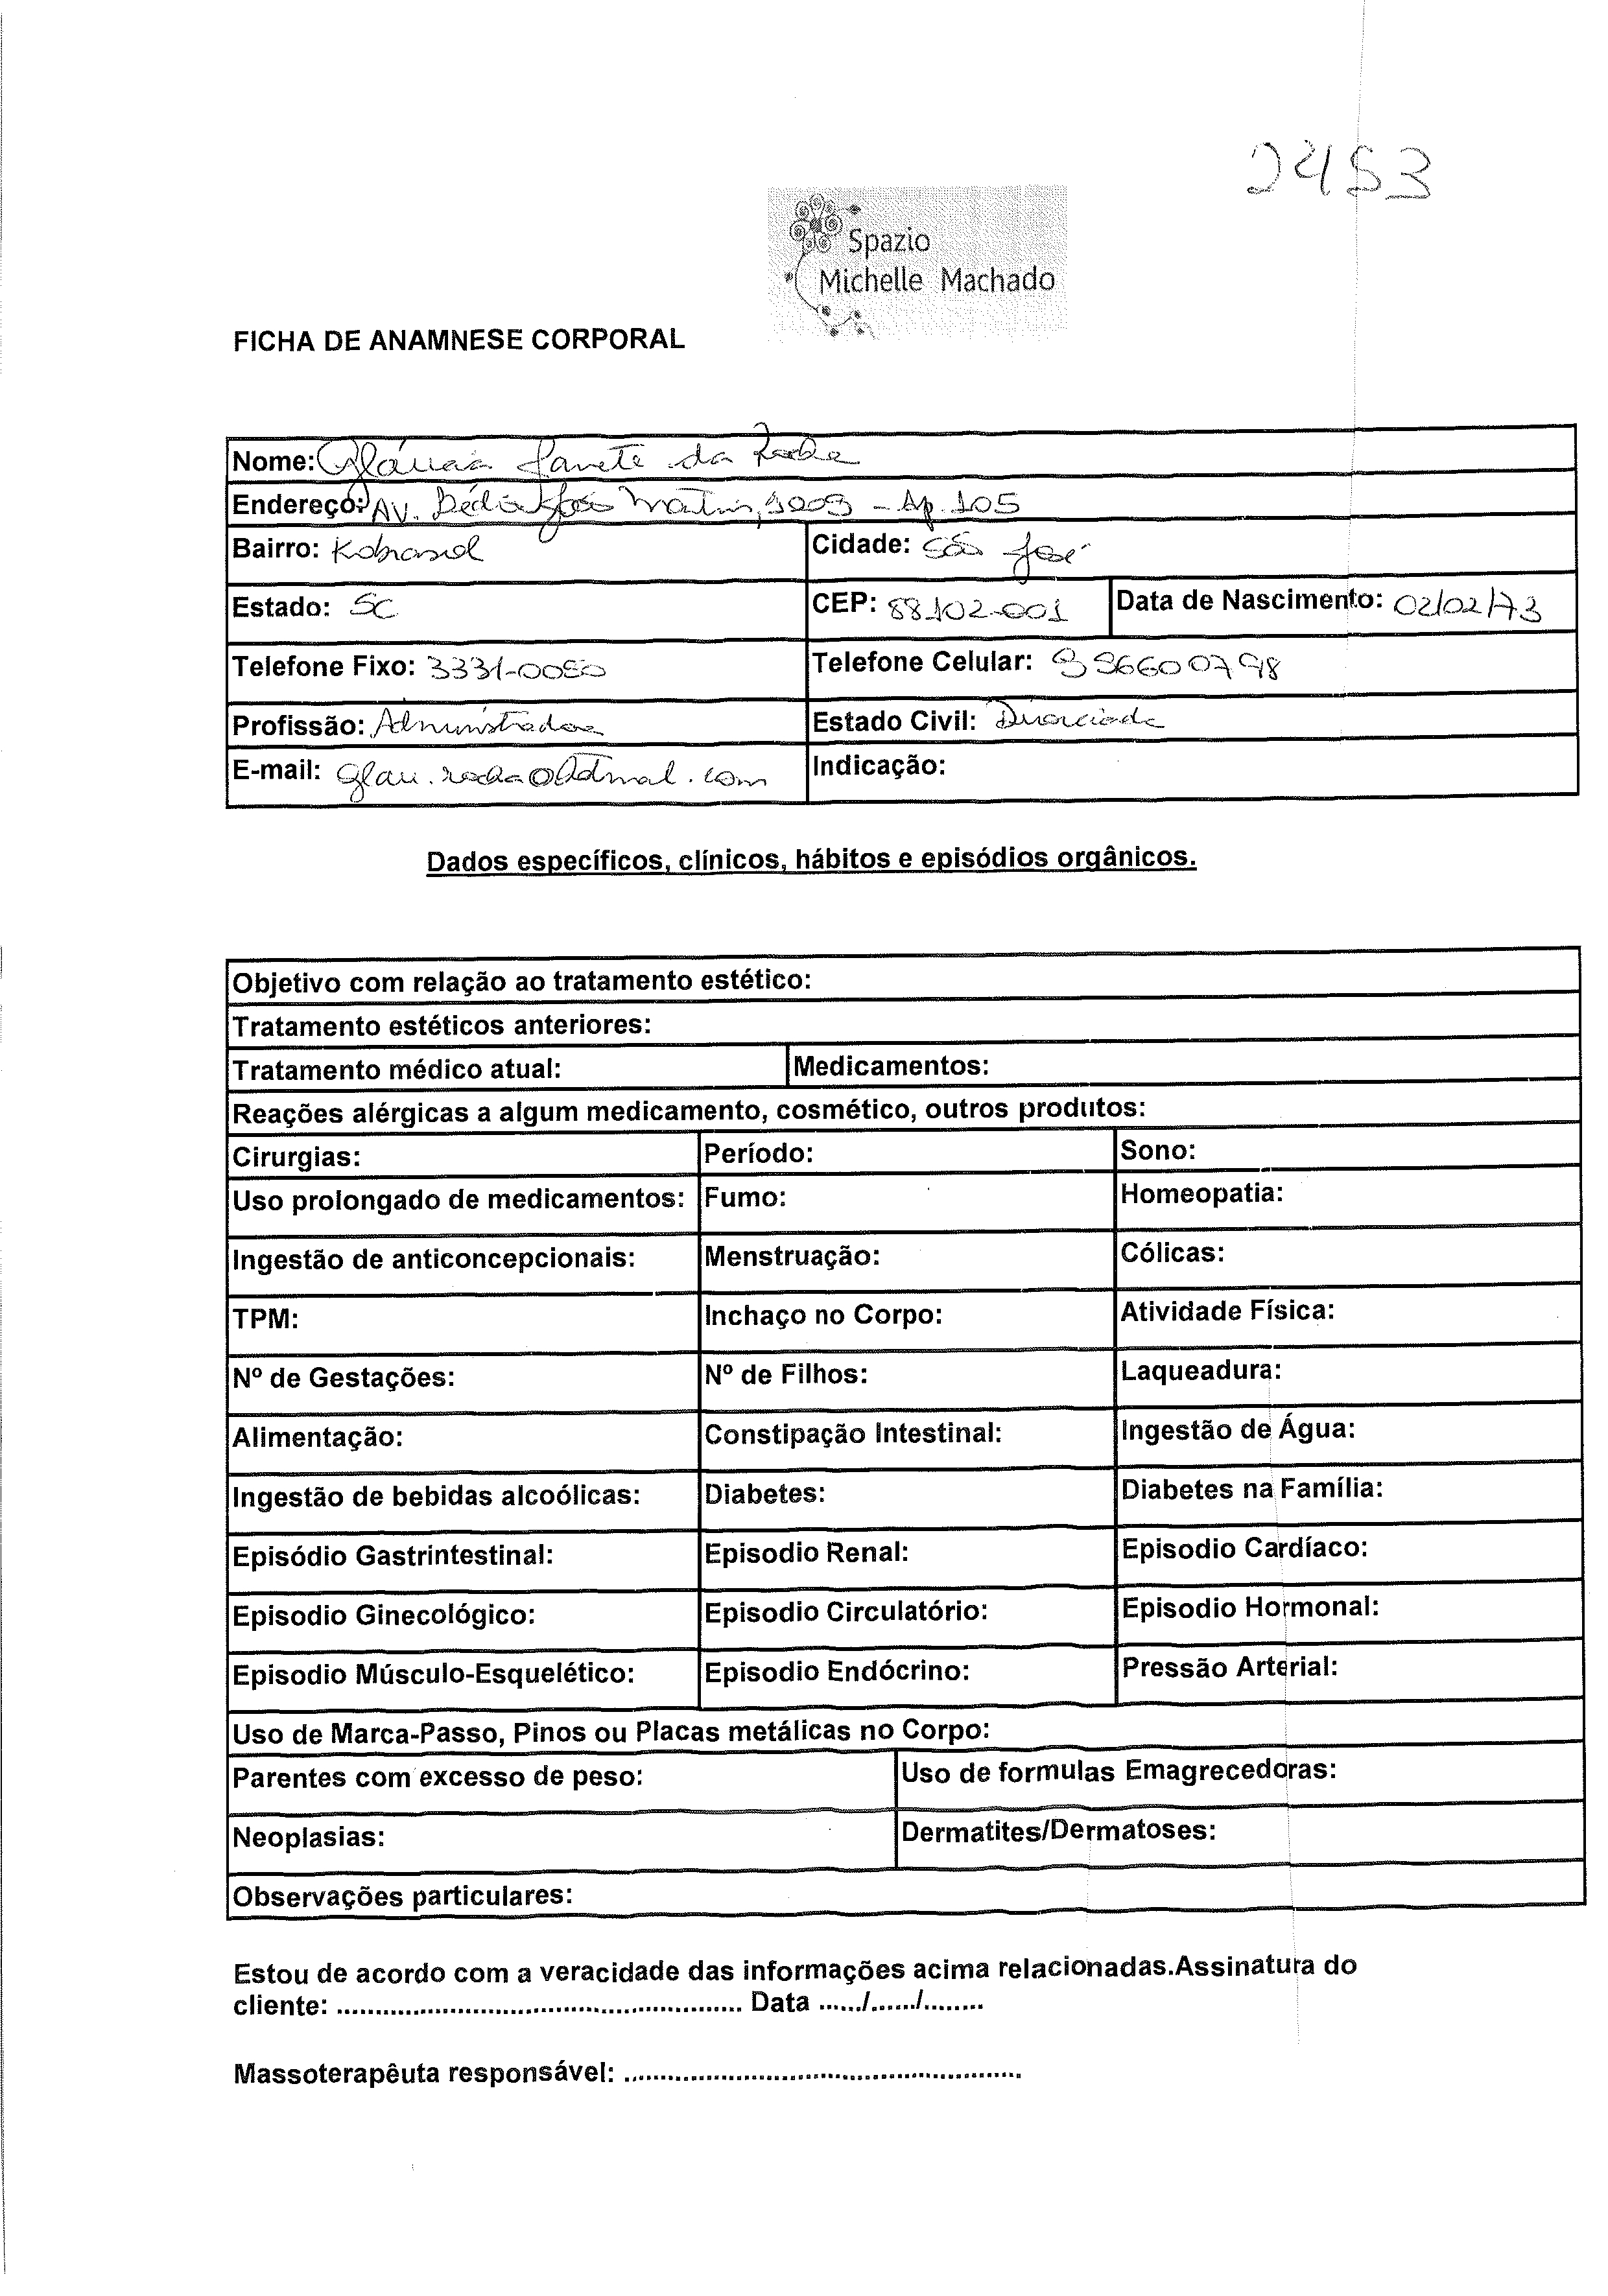 2453
Spazio
Michelle Machado
FICHA DE ANAMNESE CORPORAL
Nome: Gláucia Janete da Rocha
Endereço: Av. João Martins, 1003 - Ap. 105
Bairro: Kobrasol Cidade: São José
Estado: SC CEP: 88102-001 Data de Nascimento: 02/02/73
Telefone Fixo: 3331-0080 Telefone Celular: 996600798
Profissão: Administradora Estado Civil: Divorciada
E-mail: glau.rocha@hotmail.com Indicação:
Dados específicos, clínicos, hábitos e episódios orgânicos.
Objetivo com relação ao tratamento estético:
Tratamento estéticos anteriores:
Tratamento médico atual: Medicamentos:
Reações alérgicas a algum medicamento, cosmético, outros produtos:
Cirurgias: Período: Sono:
Uso prolongado de medicamentos: Fumo: Homeopatia:
Ingestão de anticoncepcionais: Menstruação: Cólicas:
TPM: Inchaço no Corpo: Atividade Física:
Nº de Gestações: Nº de Filhos: Laqueadura:
Alimentação: Constipação Intestinal: Ingestão de Água:
Ingestão de bebidas alcoólicas: Diabetes: Diabetes na Família:
Episódio Gastrintestinal: Episodio Renal: Episodio Cardíaco:
Episodio Ginecológico: Episodio Circulatório: Episodio Hormonal:
Episodio Músculo-Esquelético: Episodio Endócrino: Pressão Arterial:
Uso de Marca-Passo, Pinos ou Placas metálicas no Corpo:
Parentes com excesso de peso: Uso de formulas Emagrecedoras:
Neoplasias: Dermatites/Dermatoses:
Observações particulares:
Estou de acordo com a veracidade das informações acima relacionadas.Assinatura do
cliente: .................................................... Data ....../....../........
Massoterapêuta responsável: ...................................................